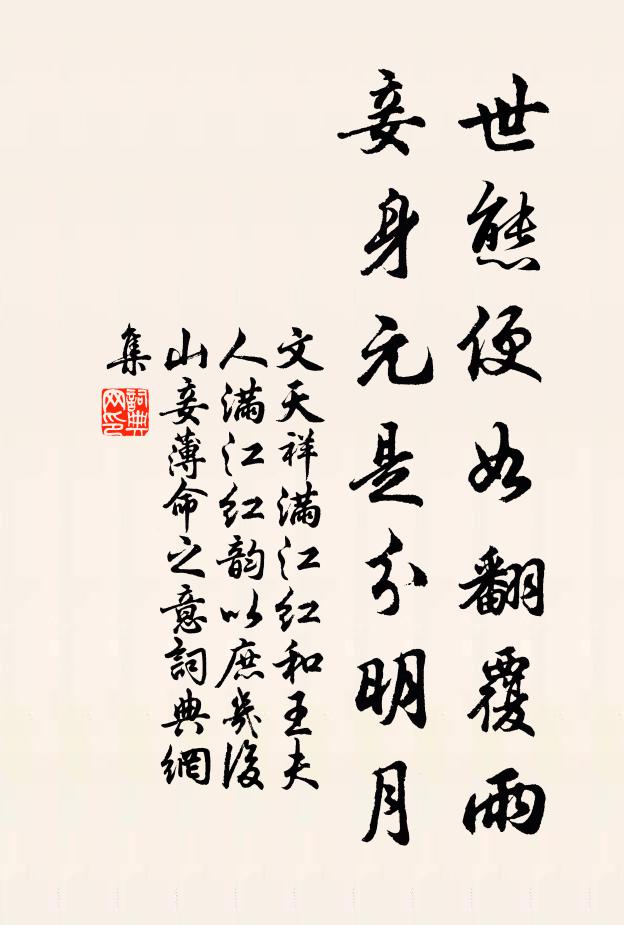 世態便如翻覆雨
妾身元是分明月
文天祥滿江红和王夫
人滿江红韵以庶幾後
山妾薄命之意詞典網
集
詞典
网印